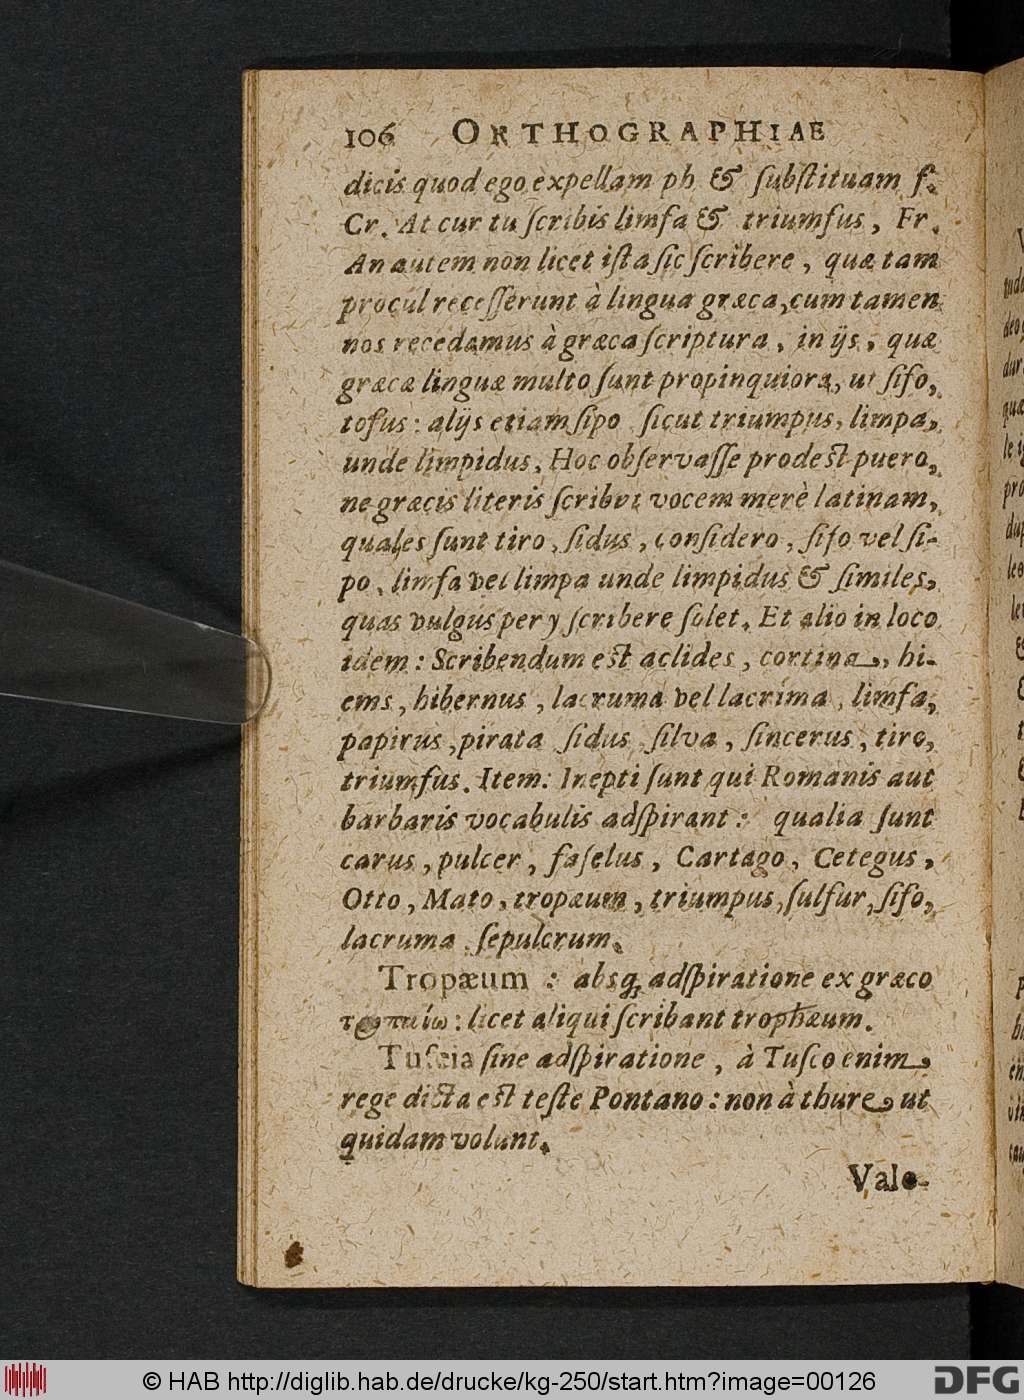 106 ORTHOGRAPHIAE
dicis quod ego expellam ph & ſubſtituam f.
Cr. At cur tu ſcribis limfa & triumfus, Fr.
An autem non licet iſta ſic ſcribere, quæ tam
procul receſſerunt à lingua græca, cum tamen
nos recedamus à græca ſcriptura, in ijs, quæ
græcæ linguæ multo ſunt propinquiora, ut ſifo,
tofus: alijs etiam ſipo ſicut triumpus, limpa,
unde limpidus. Hoc obſervaſſe prodeſt puero,
ne græcis literis ſcribat vocem merè latinam,
quales ſunt tiro, ſidus, conſidero, ſifo vel ſi-
po, limfa vel limpa unde limpidus & ſimiles,
quas vulgus per y ſcribere ſolet. Et alio in loco
idem: Scribendum eſt aclides, cortina, hi-
ems, hibernus, lacruma vel lacrima, limfa,
papirus, pirata ſidus ſilva, ſincerus, tiro,
triumfus. Item: Inepti ſunt qui Romanis aut
barbaris vocabulis adſpirant: qualia ſunt
carus, pulcer, faſelus, Cartago, Cetegus,
Otto, Mato, tropæum, triumpus, ſulfur, ſifo,
lacruma ſepulcrum.
Tropæum: absq; adſpiratione ex græco
licet aliqui ſcribant trophæum.
Tuſcia ſine adſpiratione, à Tuſco enim
rege dicta eſt teſte Pontano: non à thure ut
quidam volunt.
Vale-
© HAB http://diglib.hab.de/drucke/kg-250/start.htm?image=00126
DFG